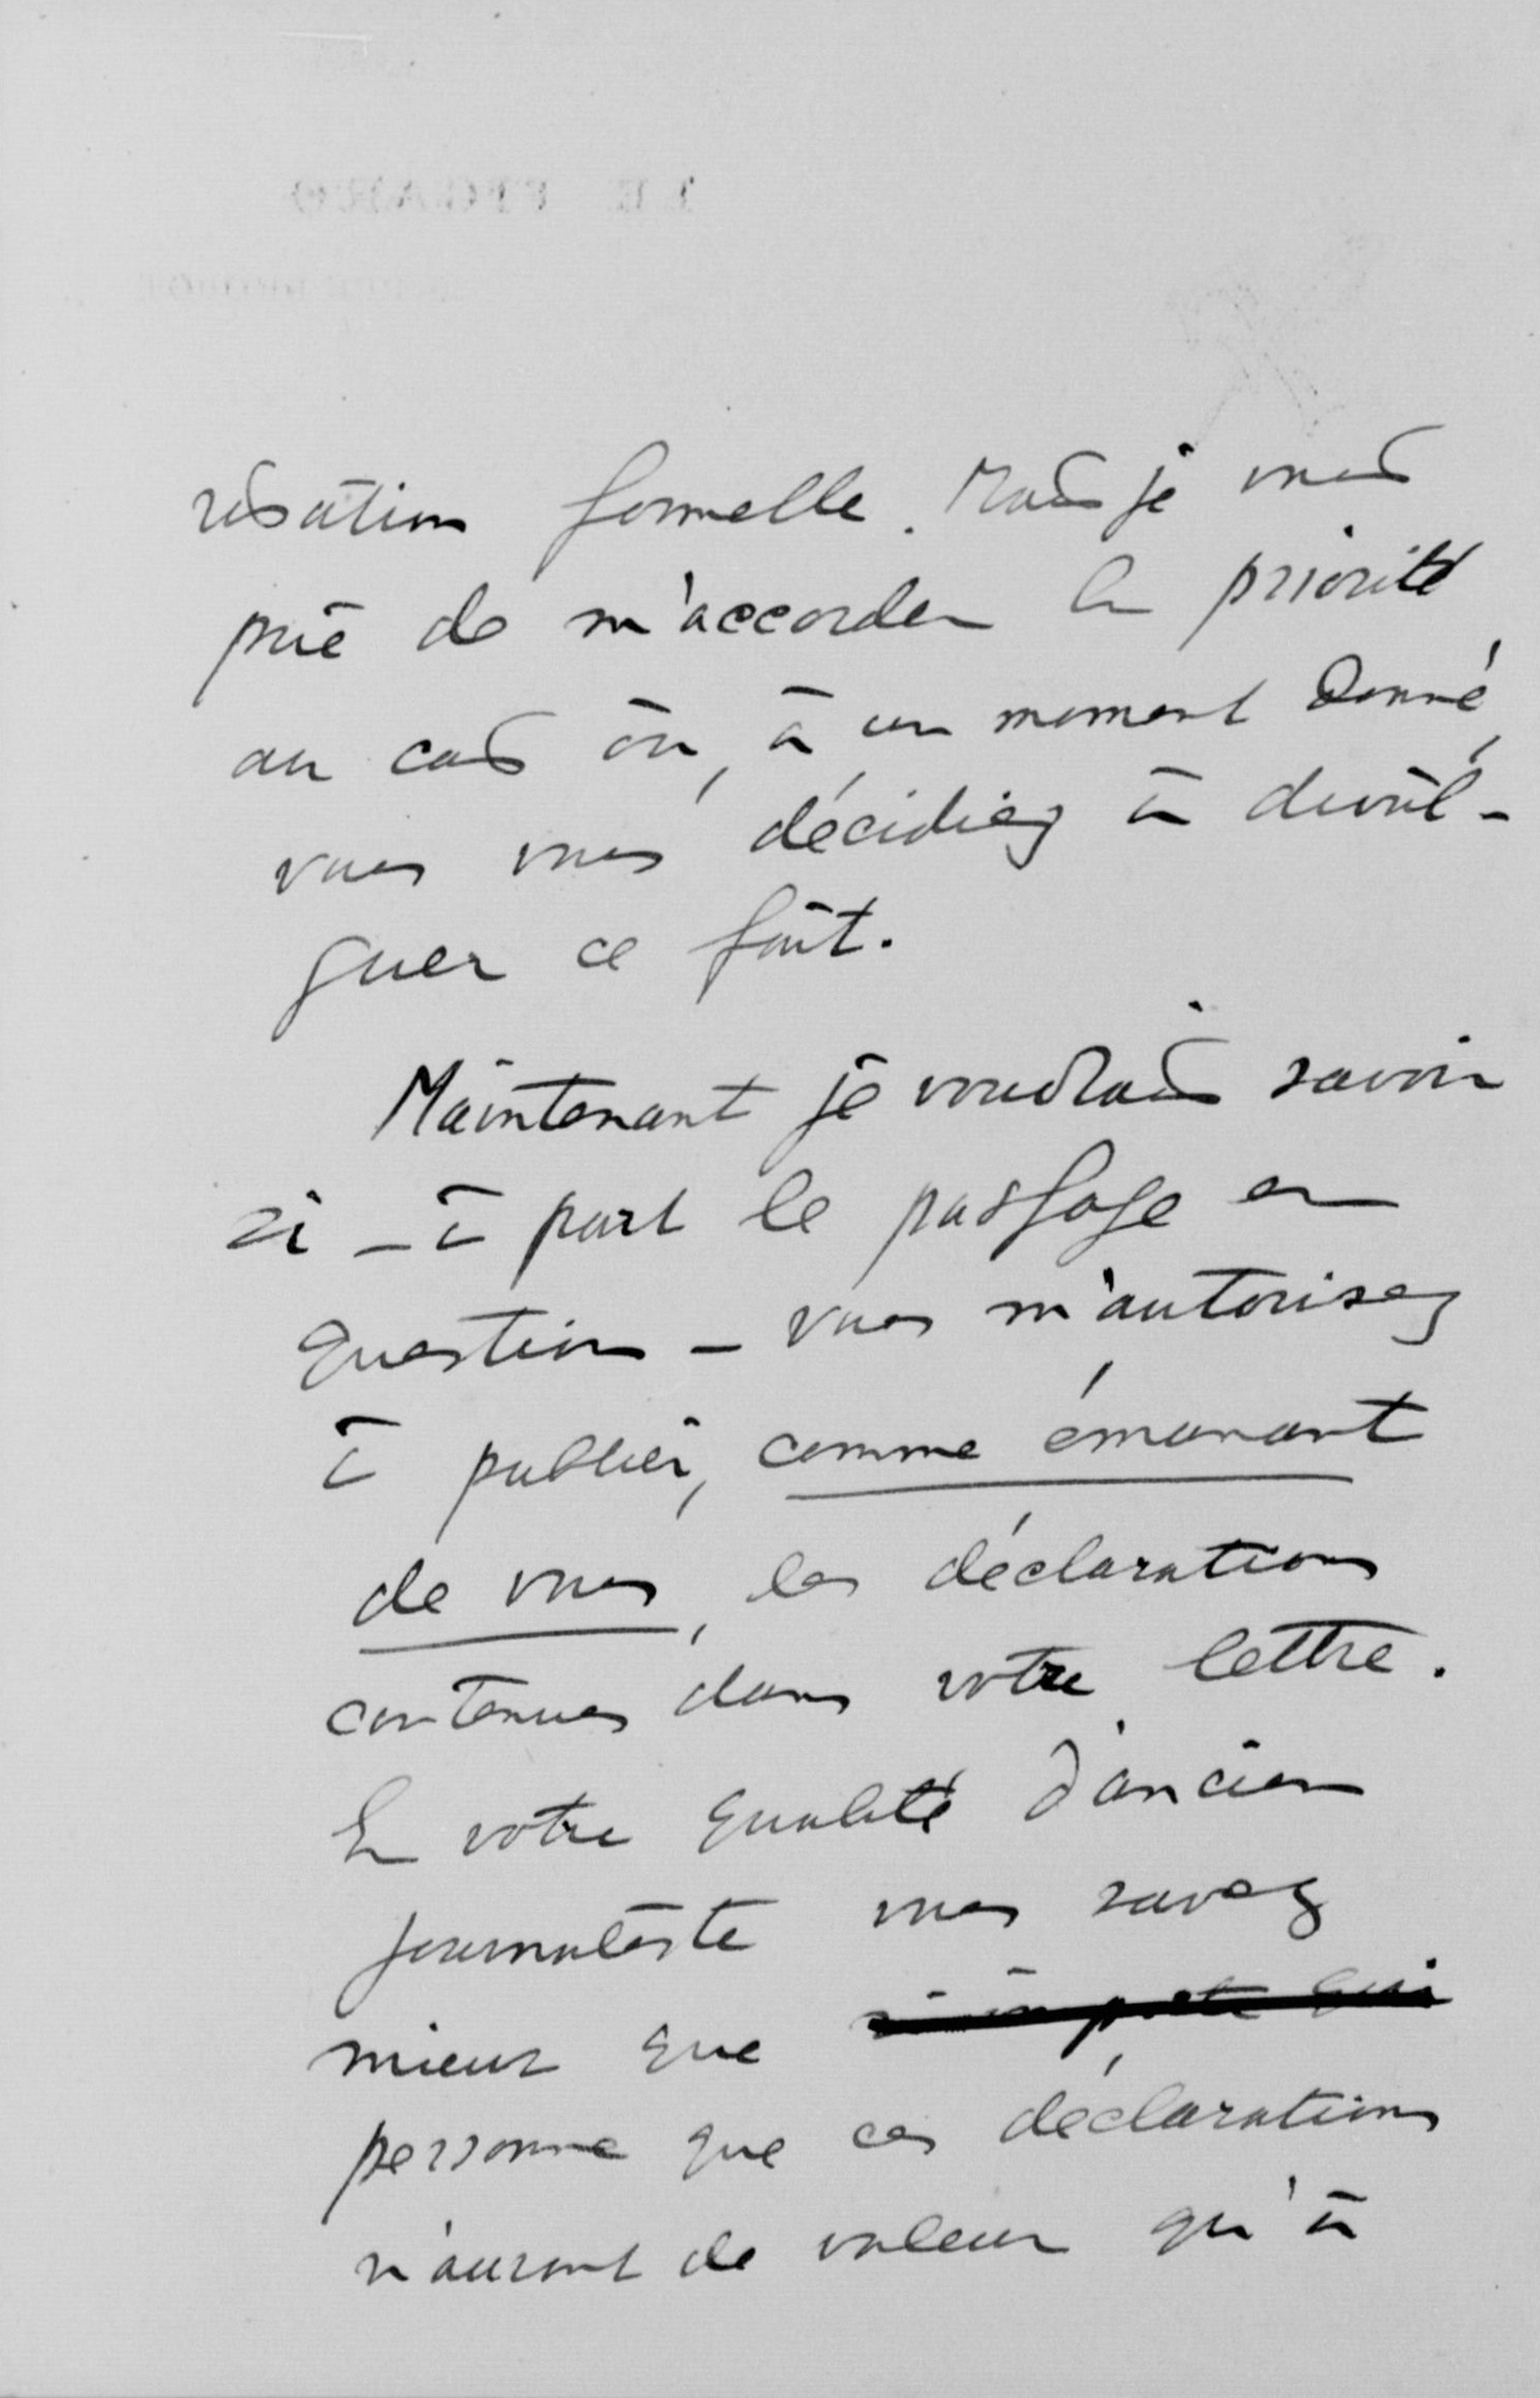 risation formelle. Mais je vous
prie de m'accorder la priorité
au cas où, à un moment donné,
vous vous décidiez à divul-
guer ce fait.
Maintenant je voudrais savoir
si – à part le passage en
question – vous m'autorisez
à publier, comme émanant
de vous, les déclarations
contenues dans votre lettre.
En votre qualité d'ancien
journaliste vous savez
mieux que
personne que ces déclarations
n'auront de valeur qu'à